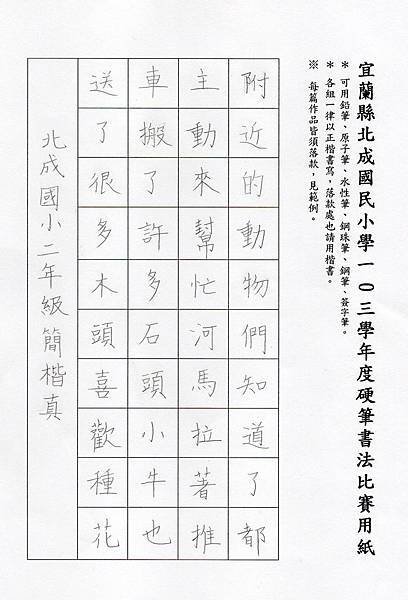 宜蘭縣北成國民小學一０三學年度硬筆書法比賽用紙
＊可用鉛筆、原子筆、水性筆、鋼珠筆、鋼筆、簽字筆。
＊各組一律以正楷書寫，落款處也請用楷書。
※ 每篇作品皆須落款，見範例。
附近的動物們知道了都
主動來幫忙河馬拉著推
車搬了許多石頭小牛也
送了很多木頭喜歡種花
北成國小二年級簡楷真